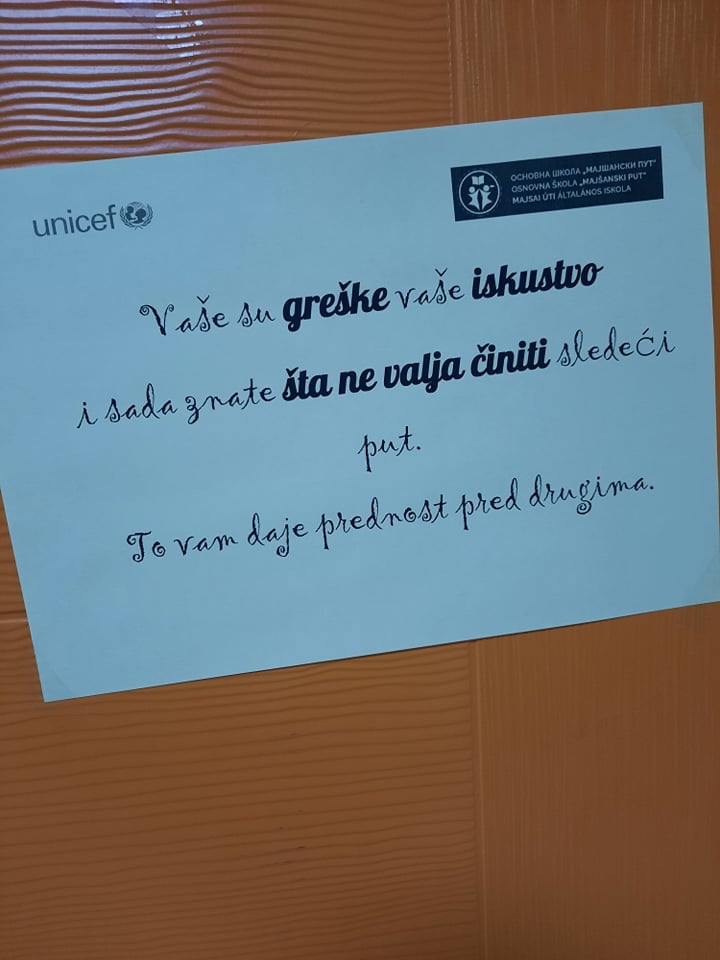 unicef
ОСНОВНА ШКОЛА „МАЈШАНСКИ ПУТ“
OSNOVNA ŠKOLA „MAJŠANSKI PUT“
MAJSAI ÚTI ÁLTALÁNOS ISKOLA
Vaše su greške vaše iskustvo
i sada znate šta ne valja činiti sledeći
put.
To vam daje prednost pred drugima.